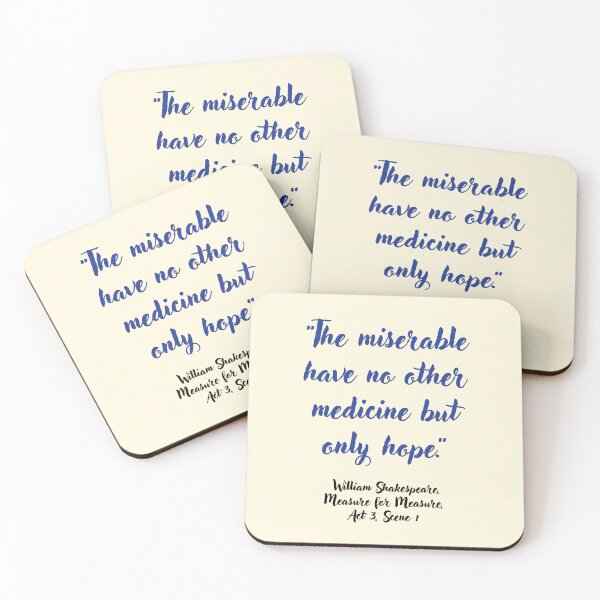 "The miserable
have no other
"The miserable
have no other
medicine but
only hope."
"The miserable
have no other
medicine but
only hope"
William
Measure for
Act 3,
"The miserable
have no other
medicine but
only hope."
William Shakespeare,
Measure for Measure,
Act 3, Scene 1